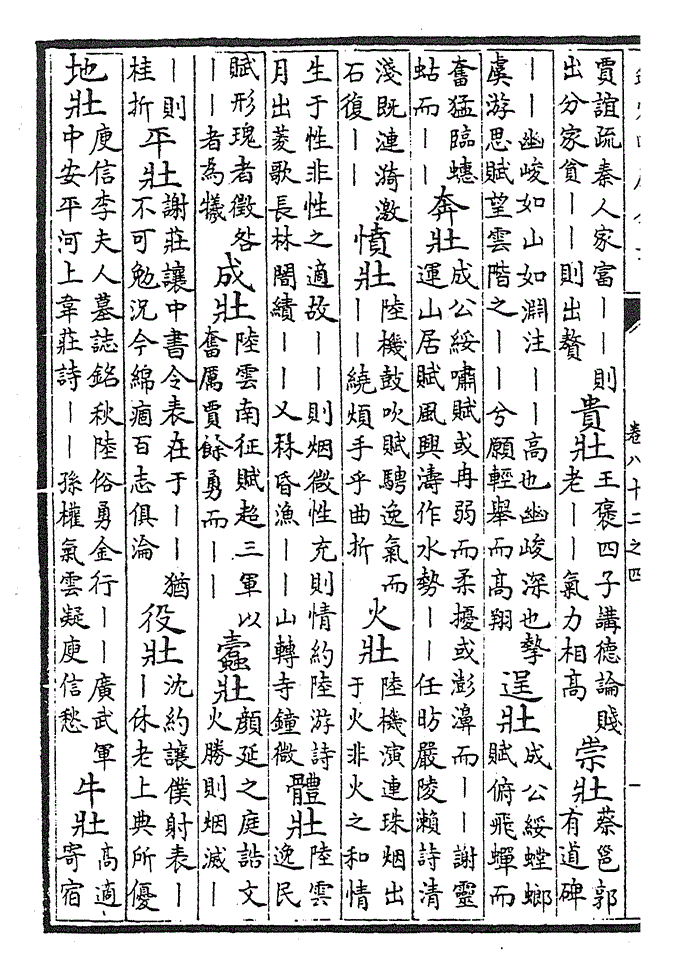 卷八十二之四
一
賈誼疏秦人家富丨丨則
出分家貧丨丨則出贅
貴壯
王褒四子講德論賤
老丨丨氣力相高
崇壯
蔡邕郭
有道碑
丨丨幽峻如山如淵注丨丨高也幽峻深也摯
虞游思賦望雲階之丨丨兮願輕舉而高翔
逞壯
成公綏螳螂
賦俯飛蟬而
奮猛臨蟪
蛄而丨丨
奔壯
成公綏嘯賦或冉弱而柔擾或澎濞而丨丨謝靈
運山居賦風興濤作水勢丨丨任昉嚴陵瀨詩清
淺既漣漪激
石復丨丨
憤壯
陸機鼓吹賦騁逸氣而
丨丨繞煩手乎曲折
火壯
陸機演連珠烟出
于火非火之和情
生于性非性之適故丨丨則烟微性充則情約陸游詩
月出菱歌長林闇績丨丨又秝昏漁丨丨山轉寺鐘微
體壯
陸雲
逸民
賦形瑰者徵咎
丨丨者為犧
成壯
陸雲南征賦超三軍以
奮厲賈餘勇而丨丨
蠹壯
顏延之庭誥文
火勝則烟滅丨
丨則
桂折
平壯
謝莊讓中書令表在于丨丨猶
不可勉況今綿痼百志俱淪
役壯
沈約讓僕射表丨
丨休老上典所優
地壯
庾信李夫人墓誌銘秋陸俗勇金行丨丨廣武軍
中安平河上韋莊詩丨丨孫權氣雲凝庾信愁
牛壯
高適
寄宿